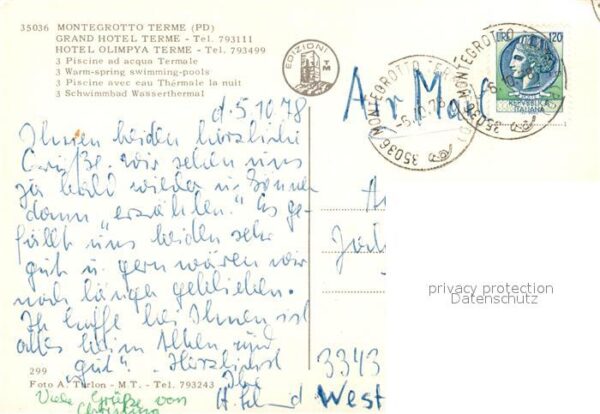 35036 MONTEGROTTO TERME (PD)
GRAND HOTEL TERME - Tel. 793111
HOTEL OLIMPYA TERME - Tel. 793499
3 Piscine ad acqua Termale
3 Warm-spring swimming-pools
3 Piscine avec eau Thérmale la nuit
3 Schwimmbad Wasserthermal
EDIZIONI
TM
LIRE 120
REPUBBLICA ITALIANA
35036 MONTEGROTTO TERME
35036 MONTEGROTTO
Air Mail
d. 5.10.78
Ihnen beiden herzliche
Grüße. wir sehen uns
ja bald wieder u. können
dann "erzählen." Es ge-
fällt uns beiden sehr
gut u. gern wären wir
noch länge geblieben.
Ich hoffe bei Ihnen ist
alles beim Alten und
"gut". Herzlichst
Ihre
3343
West
privacy protection
Datenschutz
299
Foto A. Turlon - M.T. - Tel. 793243
Viele Grüße von
Christina